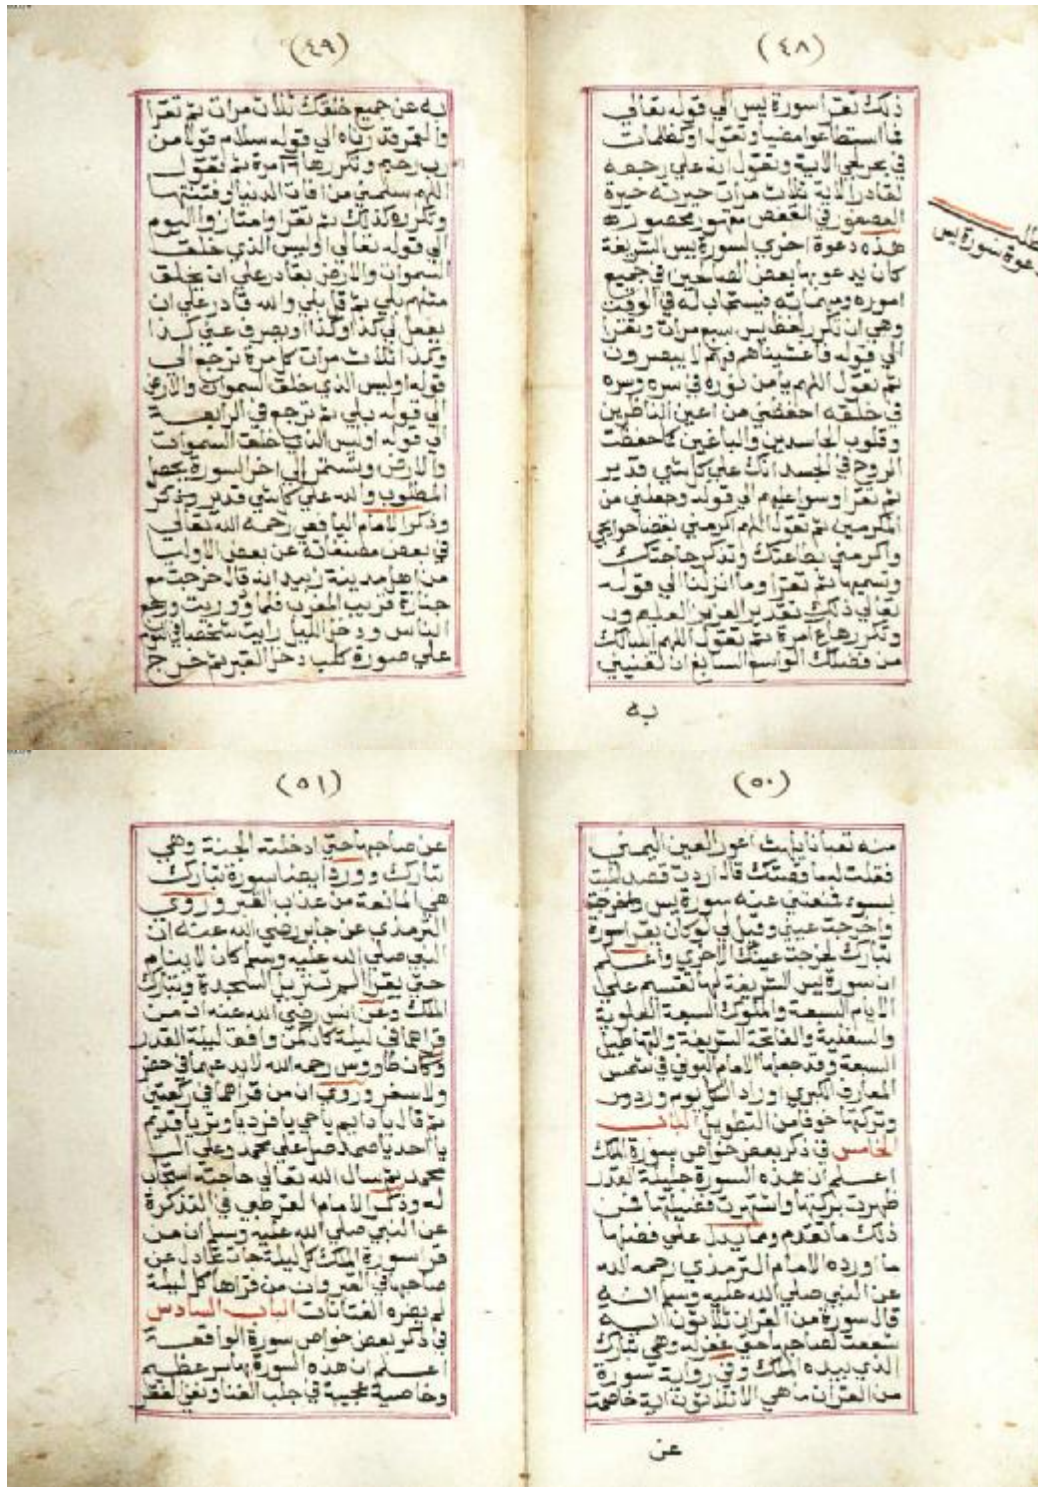 (٤٨)
ذلك تقرا سورة يس الي قوله تعالي
فما استطاعوا مضيا وتقول اوكظلمات
في بحر لجي الاية وتقول انه علي رجعه
لقادر الاية ثلاث مرات حيرته حيرة
العصفور في القفص
هذه دعوة اخري لسورة يس الشريفة
كان يدعو بها بعض الصالحين في جميع
اموره ومهماته فيستجاب له في الوقت
وهي ان تكرر لفظ يس سبع مرات وتقرا
الي قوله فاغشيناهم فهم لا يبصرون
ثم تقول اللهم يا من نوره في سره وسره
في خلقه احفظني من اعين الناظرين
وقلوب الحاسدين والباغين كما حفظت
الروح في الجسد انك علي كل شي قدير
ثم تقرا وسوا عليهم الي قوله وجعلني من
المكرمين ثم تقول اللهم اكرمني بقضا حوايجي
واكرمني بطاعتك وتذكر حاجتك
وتسميها ثم تقرا وما انزلنا الي قوله
تعالي ذلك تقدير العزيز العليم
وتكررها ١٤ مرة ثم تقول اللهم اني اسالك
من فضلك الواسع السابغ ان تغنيني
به
دعوة سورة يس
(٤٩)
به عن جميع خلقك ثلاث مرات ثم تقرا
والقمر قدرناه الي قوله سلام قولا من
رب رحيم وتكررها مرة ثم تقول
اللهم سلمني من افات الدنيا وفتنتها
وتكرره كذلك ثم تقرا وامتازوا اليوم
الي قوله تعالي اوليس الذي خلق
السموات والارض بقادر علي ان يخلق
مثلهم بلي ثم قل بلي والله قادر علي ان
يفعل لي كذا وكذا ويصرف عني كذا
وكذا ثلاث مرات كل مرة ترجع الي
قوله اوليس الذي خلق السموات والارض
الي قوله بلي ثم ترجع في الرابعة
الي قوله اوليس الذي خلق السموات
والارض وتستمر الي اخر السورة يحصل
المطلوب والله علي كل شي قدير
وذكر الامام اليافعي رحمه الله تعالي
في بعض مصنفاته عن بعض الاوليا
من اهل مدينة زبيد انه قال خرجت مع
جنازة قريب المغرب فلما ووريت ورجع
الناس ودخل الليل رايت شخصا في
علي صورة كلب دخل القبر ثم خرج
(٥٠)
منه تعبانا يلهث اعور العين اليمني
فقلت له ما قصتك قال اردت قصد الميت
بسوء فمنعتني عنه سورة يس
واخرجت عيني وقيل لي لو كان يقرا سورة
تبارك لخرجت عينك الاخري واعلم
ان سورة يس الشريفة لها تقسم علي
الايام السبعة والملوك السبعة العلوية
والسفلية والفاتحة الشريفة والتهاطيل
السبعة وقد جعلها الامام البوني في شمس
المعارف الكبري اوراد لكل يوم ورد
وتركتها خوفا من التطويل الباب
الخامس في ذكر بعض خواص سورة الملك
اعلم ان هذه السورة جليلة القدر
ظهرت بركتها واشتهرت فضيلتها فمن
ذلك ما تقدم ومما يدل علي فضلها
ما اورده الامام الترمذي رحمه الله
عن النبي صلي الله عليه وسلم انه
قال سورة من القران ثلاثون اية
شفعت لصاحبها حتي غفر له وهي تبارك
الذي بيده الملك وفي رواية سورة
من القران ما هي الا ثلاثون اية خاصمت
عن
(٥١)
عن صاحبها حتي ادخلته الجنة وهي
تبارك وورد ايضا سورة تبارك
هي المانعة من عذاب القبر وروي
الترمذي عن جابر رضي الله عنه ان
النبي صلي الله عليه وسلم كان لا ينام
حتي يقرا الم تنزيل السجدة وتبارك
الملك وعن انس رضي الله عنه ان من
قراهما في ليلة كان كمن وافق ليلة القدر
وكان طاووس رحمه الله لا يدعهما في حضر
ولا سفر وروي ان من قراهما في ركعتين
ثم قال يا دايم يا حي يا فرد يا وتر يا قديم
يا احد يا صمد صل علي محمد وعلي ال
محمد ثم سال الله تعالي حاجته استجاب
له وذكر الامام القرطبي في التذكرة
عن النبي صلي الله عليه وسلم ان من
قرا سورة الملك كل ليلة جات تجادل عن
صاحبها في القبر وان من قراها كل ليلة
لم يضره الفتانات الباب السادس
في ذكر بعض خواص سورة الواقعة
اعلم ان هذه السورة لها سر عظيم
وخاصية عجيبة في جلب الغنا ونفي الفقر